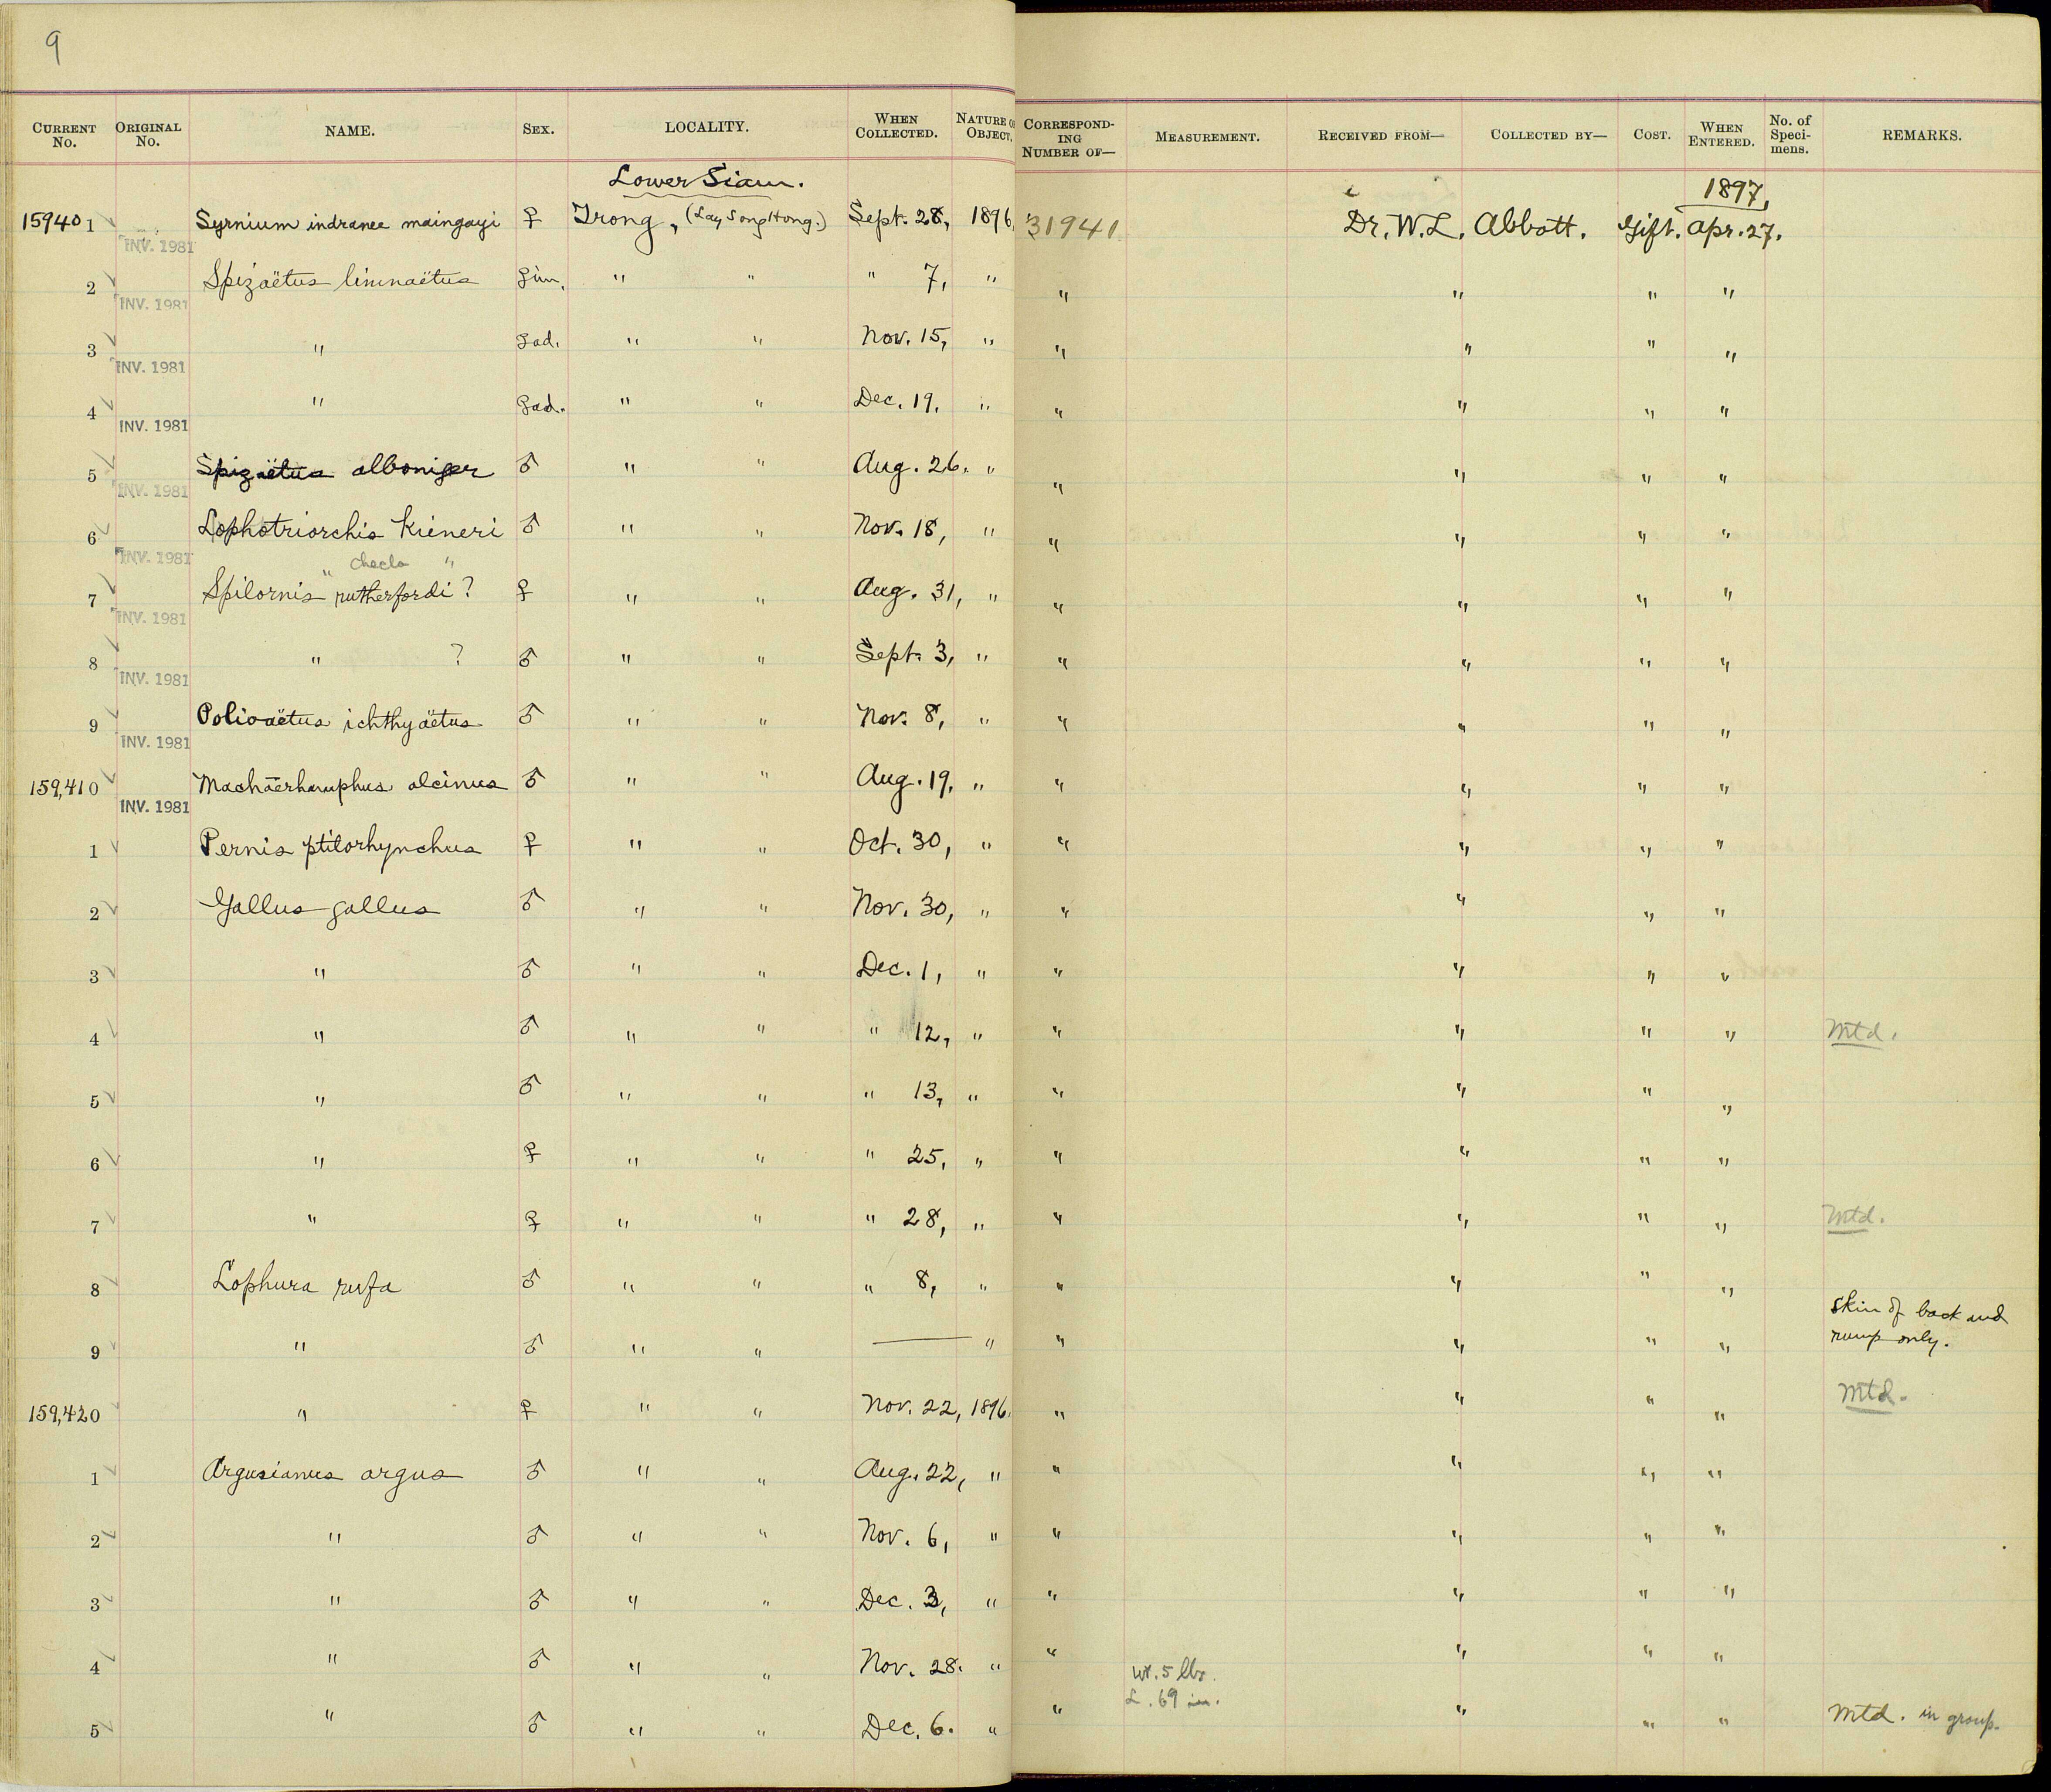 9
CURRENT No. ORIGINAL No. NAME. SEX. LOCALITY. WHEN COLLECTED. NATURE OF OBJECT. CORRESPONDING NUMBER OF— MEASUREMENT. RECEIVED FROM— COLLECTED BY— COST. WHEN ENTERED. No. of Specimens. REMARKS.
Lower Siam. 1897,
159401 Syrnium indranee maingayi ♀ Trong, (Lay Song Hong.) Sept. 28, 1896, 31941 Dr. W. L. Abbott. Gift. Apr. 27.
INV. 1981
2 Spizaëtus limnaëtus ♀im. " " " 7, " " " " "
INV. 1981
3 " ♀ad. " " Nov. 15, " " " " "
INV. 1981
4 " ♀ad. " " Dec. 19. " " " " "
INV. 1981
5 Spizaëtus alboniger ♂ " " Aug. 26. " " " " "
INV. 1981
6 Lophotriorchis kieneri ♂ " " Nov. 18, " " " " "
INV. 1981
" cheela "
7 Spilornis rutherfordi? ♀ " " Aug. 31, " " " " "
INV. 1981
8 " ? ♂ " " Sept. 3, " " " " "
INV. 1981
9 Polioaëtus ichthyaëtus ♂ " " Nov. 8, " " " " "
INV. 1981
159,410 Machaerhamphus alcinus ♂ " " Aug. 19, " " " " "
INV. 1981
1 Pernis ptilorhynchus ♀ " " Oct. 30, " " " " "
2 Gallus gallus ♂ " " Nov. 30, " " " " "
3 " ♂ " " Dec. 1, " " " " "
4 " ♂ " " " 12, " " " " " Mtd.
5 " ♂ " " " 13, " " " " "
6 " ♀ " " " 25, " " " " "
7 " ♀ " " " 28, " " " " " Mtd.
8 Lophura rufa ♂ " " " 8, " " " " "
skin of back and
9 " ♂ " " — " " " " " rump only.
159,420 " ♀ " " Nov. 22, 1896. " " " " Mtd.
1 Argusianus argus ♂ " " Aug. 22, " " " " "
2 " ♂ " " Nov. 6, " " " " "
3 " ♂ " " Dec. 3, " " " " "
4 " ♂ " " Nov. 28. " " " " "
Wt. 5 lbs.
L. 69 in.
5 " ♂ " " Dec. 6. " " " " " Mtd. in group.